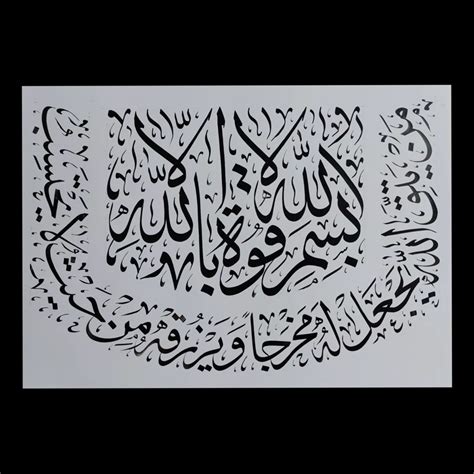 بسم الله لا قوة إلا بالله
من يتق الله يجعل له مخرجاً ويرزقه من حيث لا يحتسب